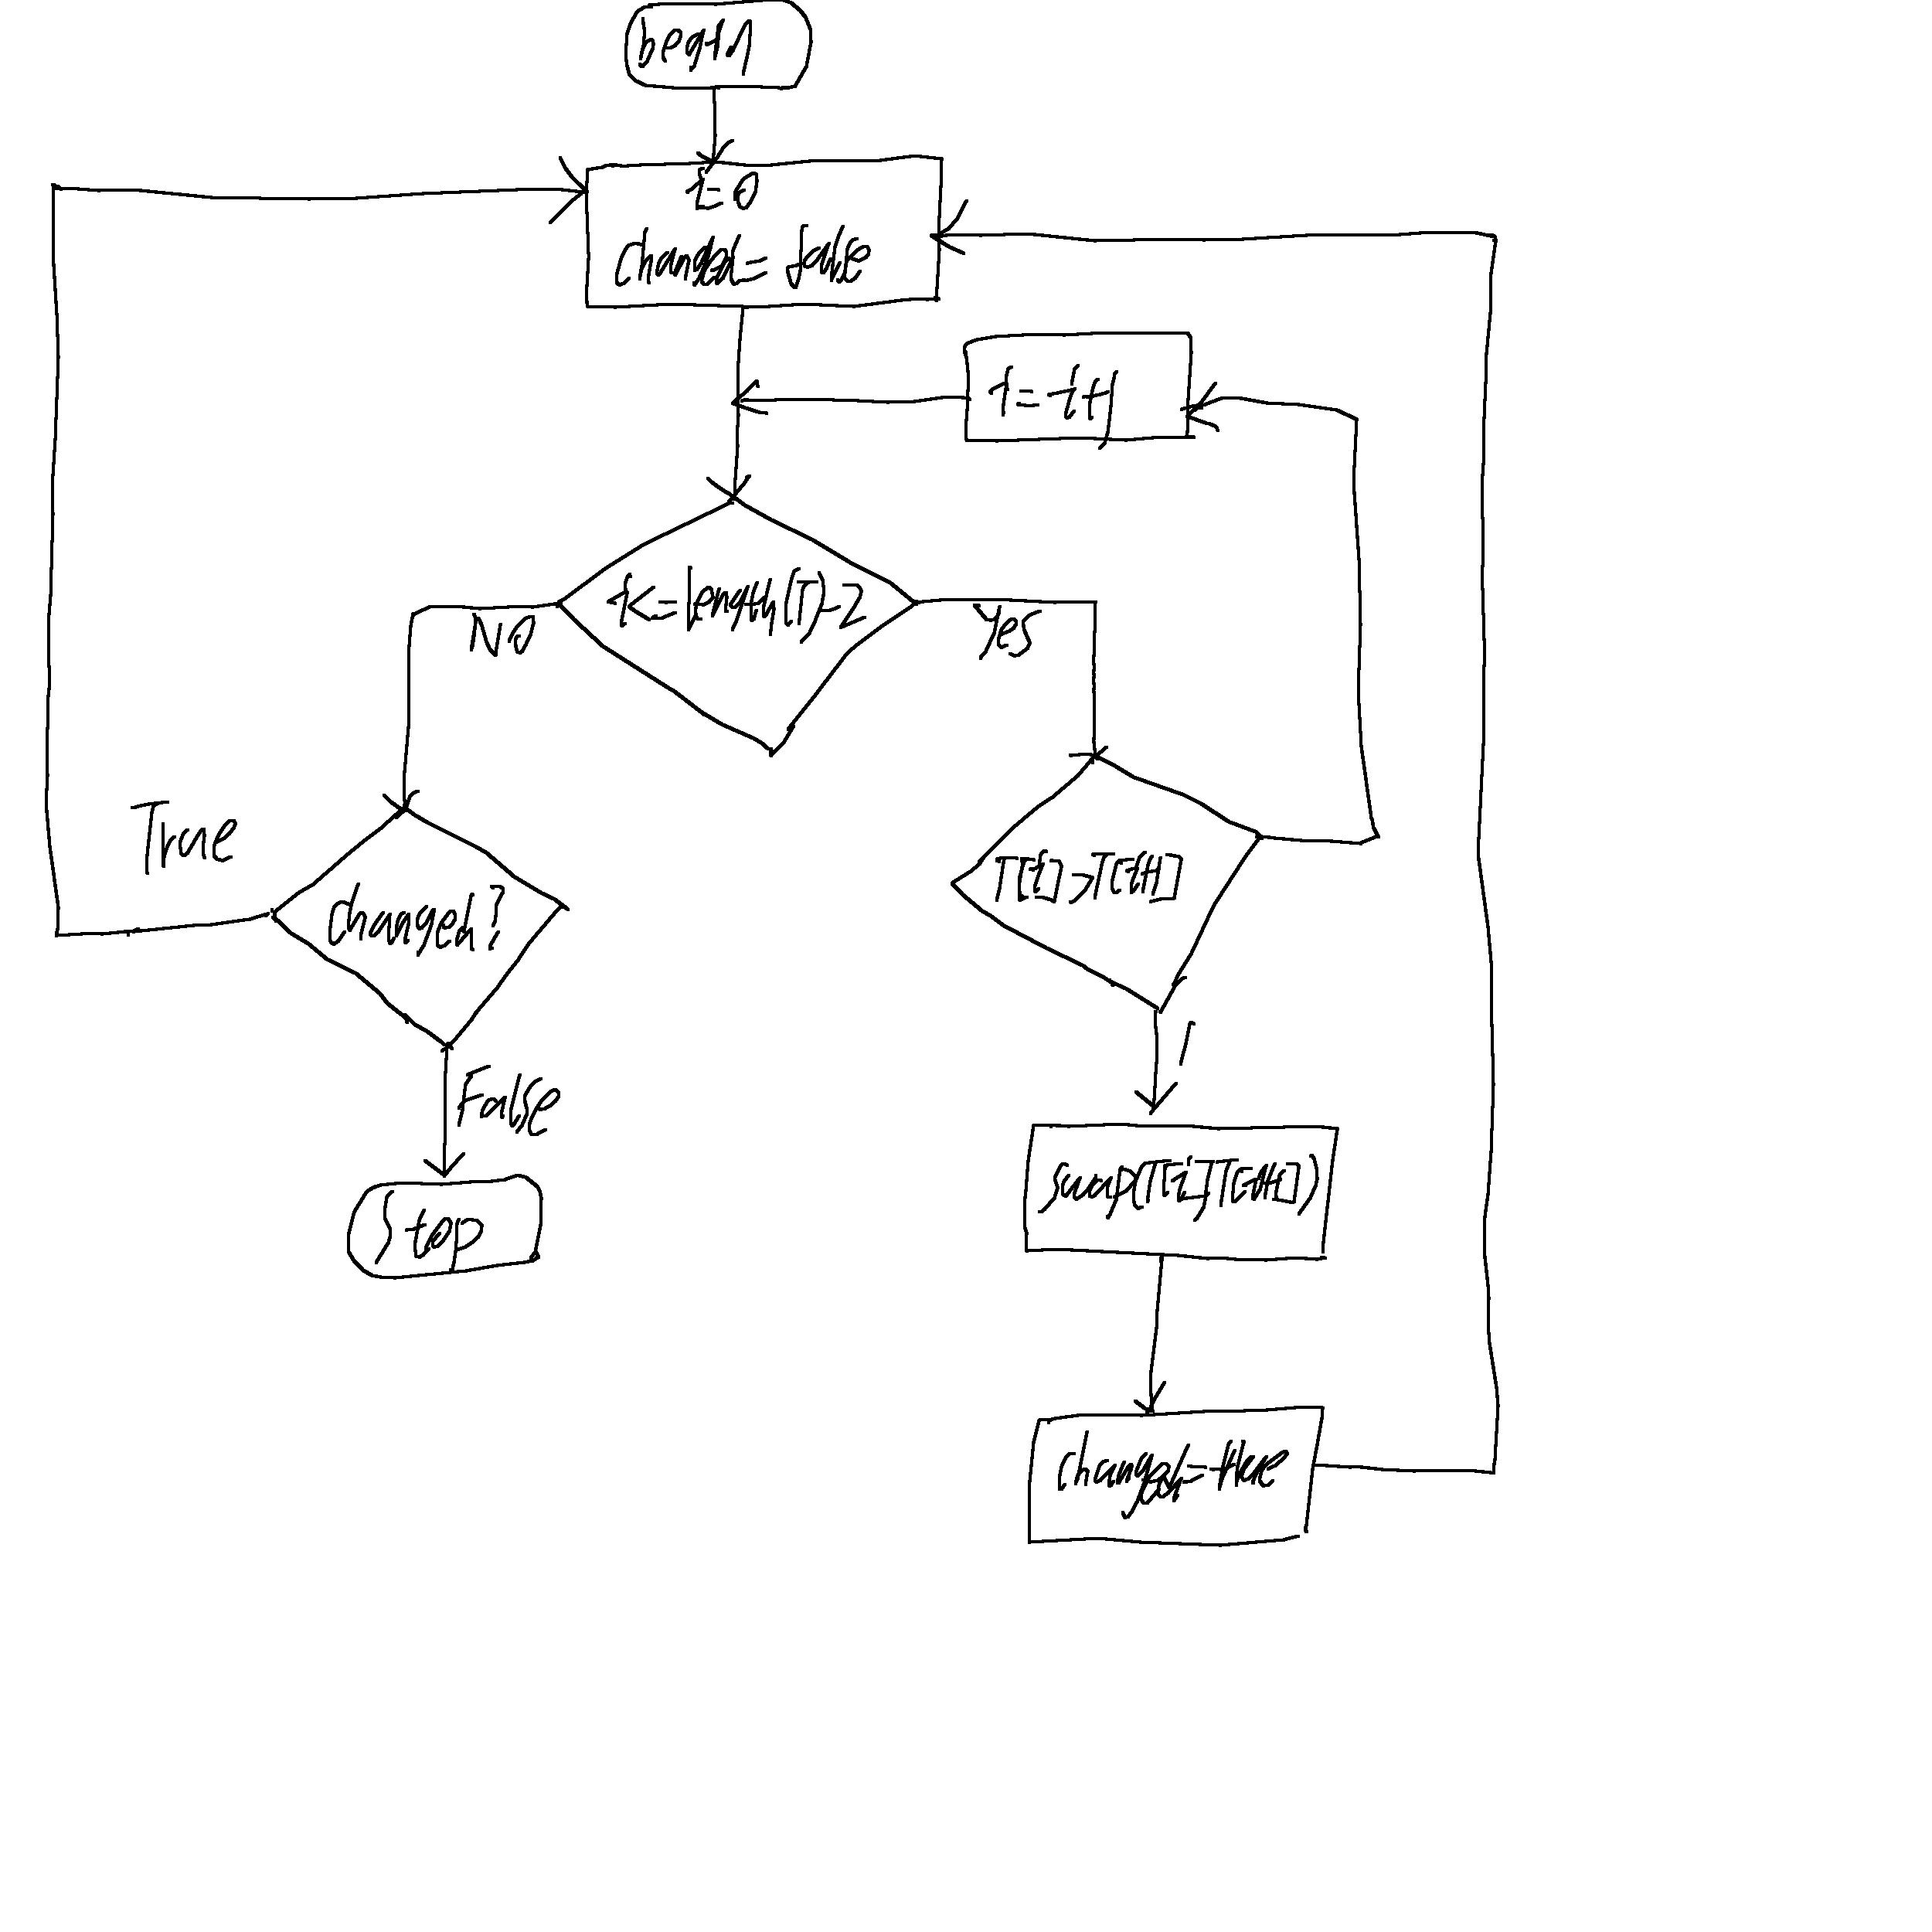 begin
i=0
changed=false
i=i+1
i<=length(T)-2
No
Yes
True
changed?
T[i]>T[i+1]
1
False
swap(T[i],T[i+1])
Stop
changed=true